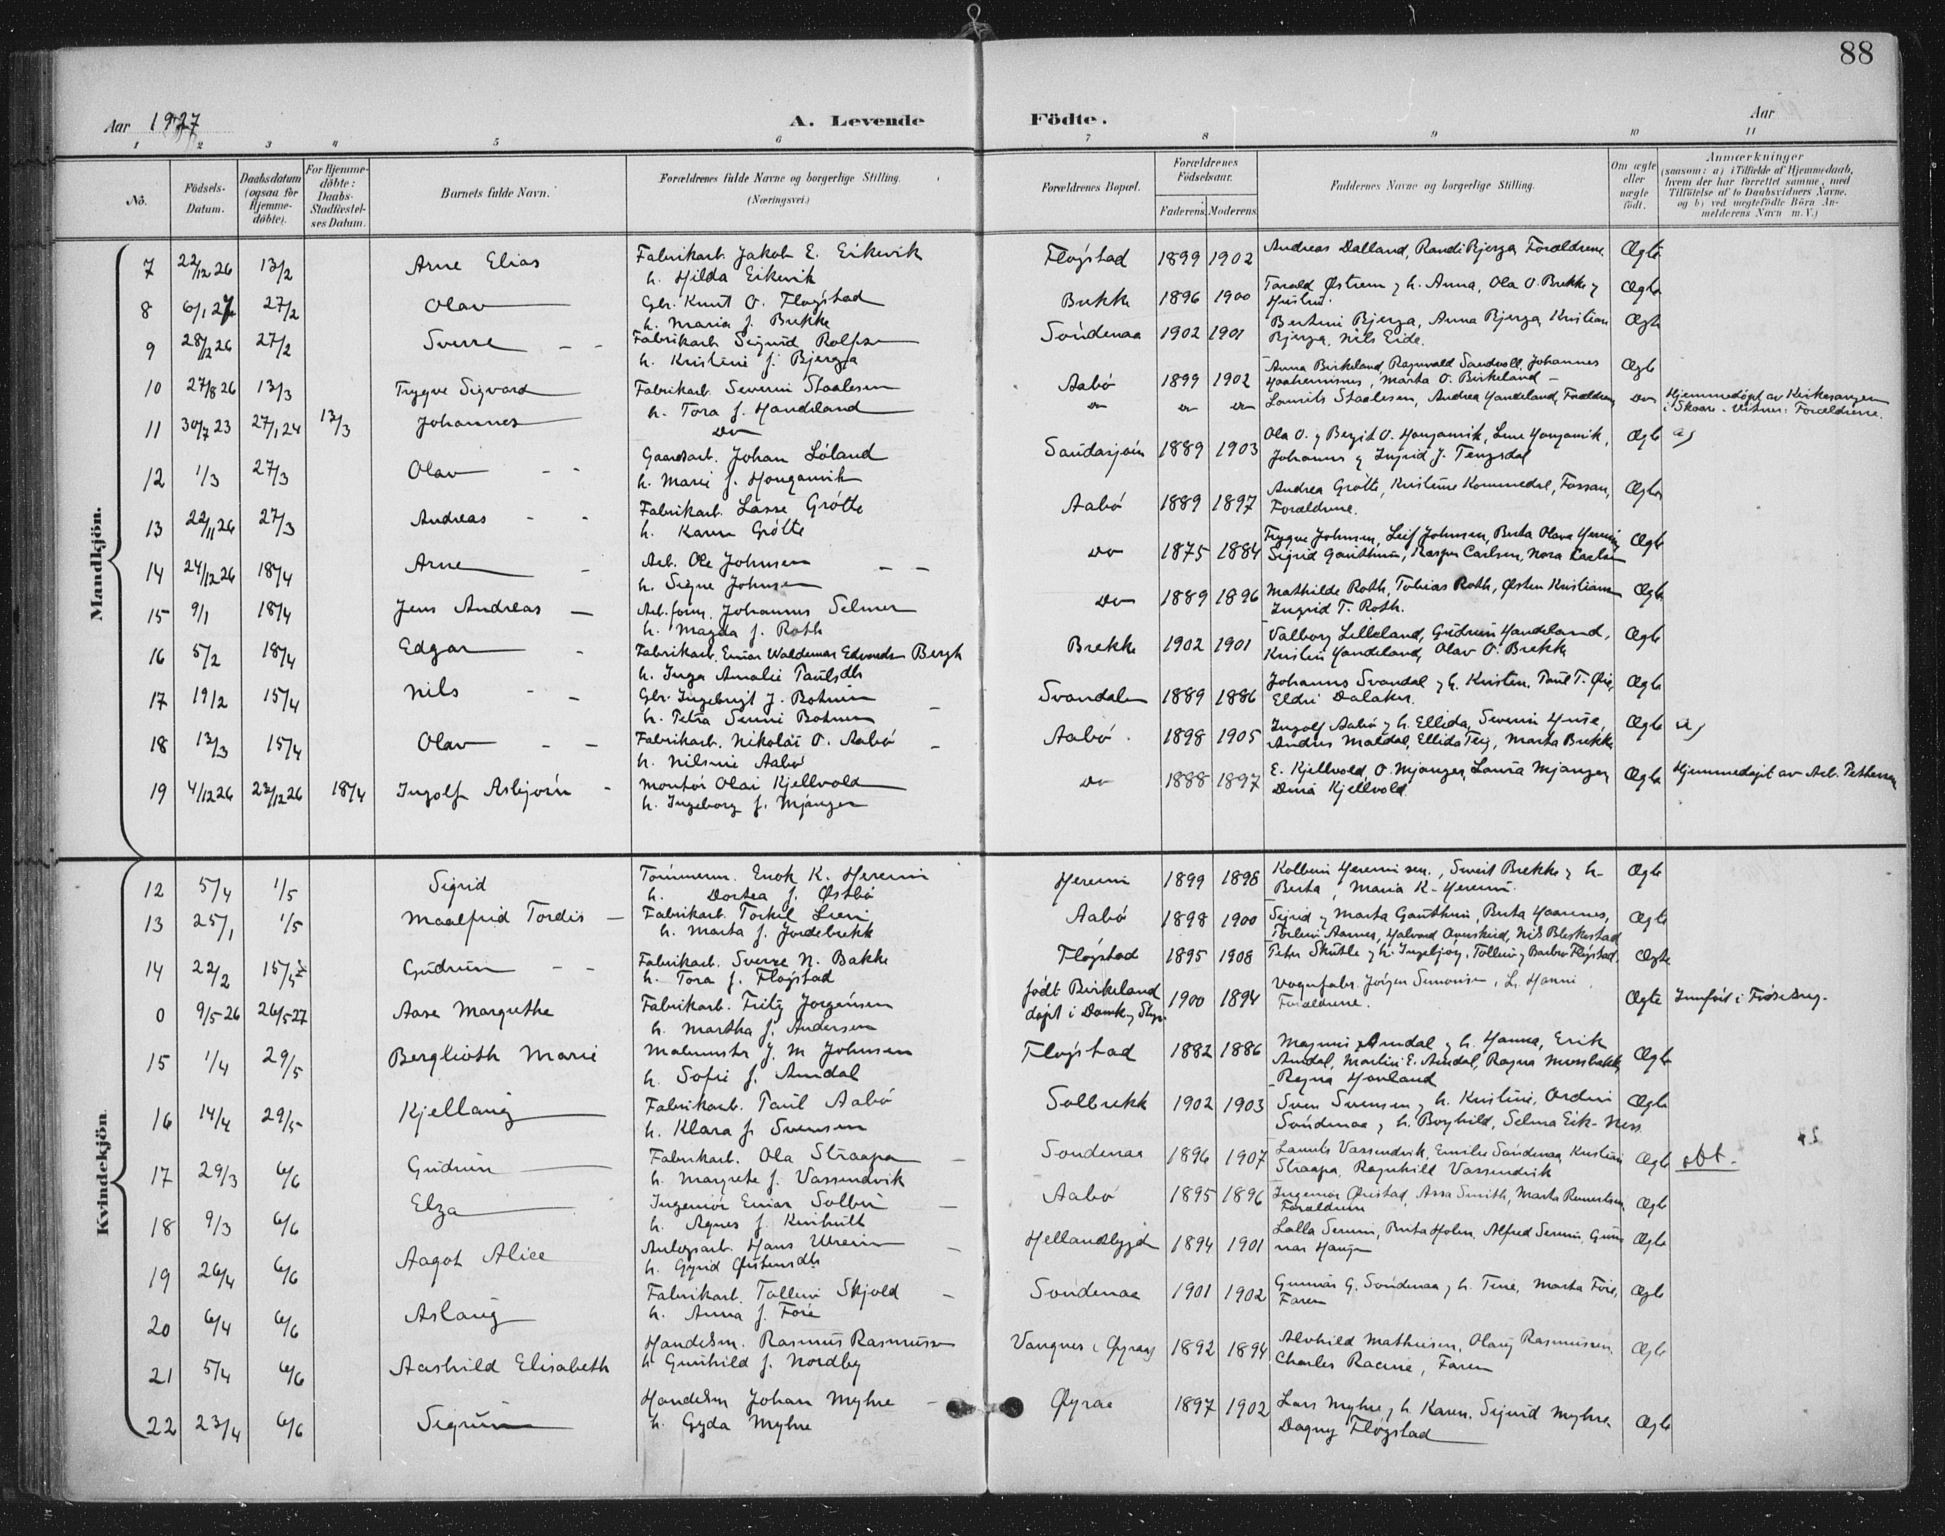 88
Aar 1927
A. Levende Födte.
Aar
1 2 3 4 5 6 7 8 9 10 11
Nö.
Födsels-Datum.
Daabsdatum (ogsaa for Hjemme-döbte).
For Hjemme-döbte: Daabs-Stadfestel-ses Datum.
Barnets fulde Navn.
Forældrenes fulde Navne og borgerlige Stilling. (Næringsvei.)
Forældrenes Bopæl.
Forældrenes Födselsaar.
Faderens. Moderens.
Faddernes Navne og borgerlige Stilling.
Om ægte eller uægte födt.
Anmærkninger
(saasom: a) i Tilfælde af Hjemmedaab, hvem der har forrettet samme, med Tilföielse af to Daabsvidners Navne, og b) ved uægtefödte Börn An-melderens Navn m. V.)
Mandkjön.
7 22/12 26 13/2 Arne Elias Fabrikarb. Jakob E. Eikevik Fløgstad 1899 1902 Andreas Dalland, Randi Bjerga Forældrene Ægte
h. Hilda Eikevik
8 6/1 27 27/2 Olav Gbr. Knut O. Fløgstad Brekke 1896 1900 Tarald Østrem og h. Anna, Ola O. Brekke og Hustru. Ægte
h. Maria f. Brekke
9 28/12 26 27/2 Sverre Fabrikarb. Sigurd Rolfsen Sóndenaa 1902 1901 Bertini Bjerga, Anna Bjerga Kristian Ægte
h. Kristine f. Bjerga Bjerga, Nils Eide.
10 27/8 26 13/3 Trygve Sigvard Fabrikarb. Severin Staalesen Aabø 1899 1902 Anna Birkeland, Ragnvald Sandvoll, Johannes Ægte
h. Tora f. Handeland Marta O. Birkeland
11 30/7 23 27/1 24 13/3 Johannes Do Do Do Do Laurits Staalesen, Andrea Handeland, Forældrene Do Hjemmedøpt av Kirkesanger
i Skaare. Vitner: Forældrene.
12 1/3 27/3 Olav Gaardsarb. Johan Løland Saudasjøen 1889 1903 Ola O. og Bergit O. Honganvik, Lene Honganvik, Ægte a)
h. Marie f. Honganvik Johannes og Ingrid J. Tengsdal
13 22/11 26 27/3 Andreas Fabrikarb. Lasse Grøtte Aabø 1889 1897 Andrea Grøtte, Kristine Kommedal, Fossan, Ægte
h. Karen Grøtte Forældrene.
14 24/12 26 18/4 Arne Arb. Ole Johnsen Do 1875 1884 Trygve Johnsen, Leif Johnsen, Berta Olava Ægte
h. Signe Johnsen Sigrid Kasper Carlsen, Nora Carlsen
15 9/1 18/4 Jens Andreas Arb.form. Johannes Selmer Do 1889 1896 Mathilde Roth, Tobias Roth, Østen Kristiansen Ægte
h. Magda f. Roth Ingrid T. Roth.
16 5/2 18/4 Edgar Fabrikarb. Einar Waldemar Edvards. Bergh Brekke 1902 1901 Valborg Lilleland, Gudrun Handeland, Ægte
h. Inga Amalie Paulsdtr Kristin Handeland, Olav O. Brekke
17 19/2 15/4 Nils Gbr. Ingebrigt J. Botnen Svandalen 1889 1886 Johannes Svandal og h. Kristen. Paul T. Ægte
h. Petra Botnen Eldri Dalaker
18 13/3 15/4 Olav Fabrikarb. Nikolai O. Aabø Aabø 1898 1905 Ingolf Aabø og h. Ellida, Severin Ægte a)
h. Nilsine Aabø Anders Maldal, Ellida Teig, Marta Brekke
19 4/12 26 23/12 26 18/4 Ingolf Asbjørn Montør Olai Kjellvold Do 1888 1897 E. Kjellvold, O. Mjanger, Laura Mjanger, Ægte Hjemmedøpt av Arb. Pettersen
h. Ingeborg f. Mjanger Dina Kjellvold
Kvindekjön.
12 5/4 1/5 Sigrid Tömmerm. Enok K. Hereim Hereim 1899 1898 Kolbein Hereim sen., Svein Brekke og h. Ægte
h. Dortea f. Østbø Berta, Maria K. Hereim.
13 25/1 1/5 Maalfrid Tordis Fabrikarb. Torkil Lien Aabø 1898 1900 Sigrid og Marta Berta Ægte
h. Marta f. Jordebrekk Torleiv Aarnes, Halvard Nils Bleskestad
14 22/2 15/5 Gudrun Fabrikarb. Sverre N. Bakke Fløgstad 1895 1908 Peter og h. Ingebjørg, Tollein og Barbro Fløgstad. Ægte
h. Tora f. Fløgstad
0 9/5 26 26/5 27 Aase Margrethe Fabrikarb. Fritz Jørgensen født Birkeland 1900 1894 Vognfabr. Jørgen Simonsen, h. Hanni Ægte Innført i Fødselsreg.
h. Martha f. Andersen døpt i Forældrene.
15 1/4 29/5 Berglioth Marie J. M Johnsen Fløgstad 1882 1886 Magnus Amdal og h. Hanna, Erik Ægte
h. Sofie f. Amdal Amdal, Martin E. Amdal, Ragna
Regna Havland
16 14/4 29/5 Kjellaug Fabrikarb. Paul Aabø Solbrekk 1902 1903 Sven Svensen og h. Kristine, Ordin Ægte
h. Klara f. Svensen Sóndenaa og h. Borghild, Selma Eik-Ness
17 29/3 6/6 Gudrun Fabrikarb. Ola Straapa Sondenaa 1896 1907 Laurits Vassendvik, Emilie Sóndenaa, Kristian Ægte att.
h. Margrete f. Vassendvik Straapa, Ragnhild Vassendvik
18 9/3 6/6 Elza Ingeniør Einar Solbu Aabø 1895 1896 Ingeniør Assa Smith, Marta Ægte
h. Agnes f. Forældrene
19 26/4 6/6 Aagot Alice Anlegsarb. Hans Hellandsbygd 1894 1901 Lalla Berta Holm, Alfred Gun- Ægte
h. Gyrid Øistensdtr nar
20 6/4 6/6 Aslaug Fabrikarb. Tolleiv Skjold Sondenaa 1901 1902 Gunnar G. Sóndenaa og h. Tine, Marta Ægte
h. Anna f. Faren
21 5/4 6/6 Aashild Elisabeth Handelsm. Rasmus Rasmussen Vangnes i Øyrae 1892 1894 Alvhild Mathiesen, Olaug Rasmussen Ægte
h Gunhild f. Nordby Charles Racine, Faren
22 23/4 6/6 Sigrun Handelsm Johan Myhre Øyrae 1897 1902 Lars Myhre og h. Karen. Sigurd Myhre Ægte
h. Gyda Myhre Dagny Fløgstad